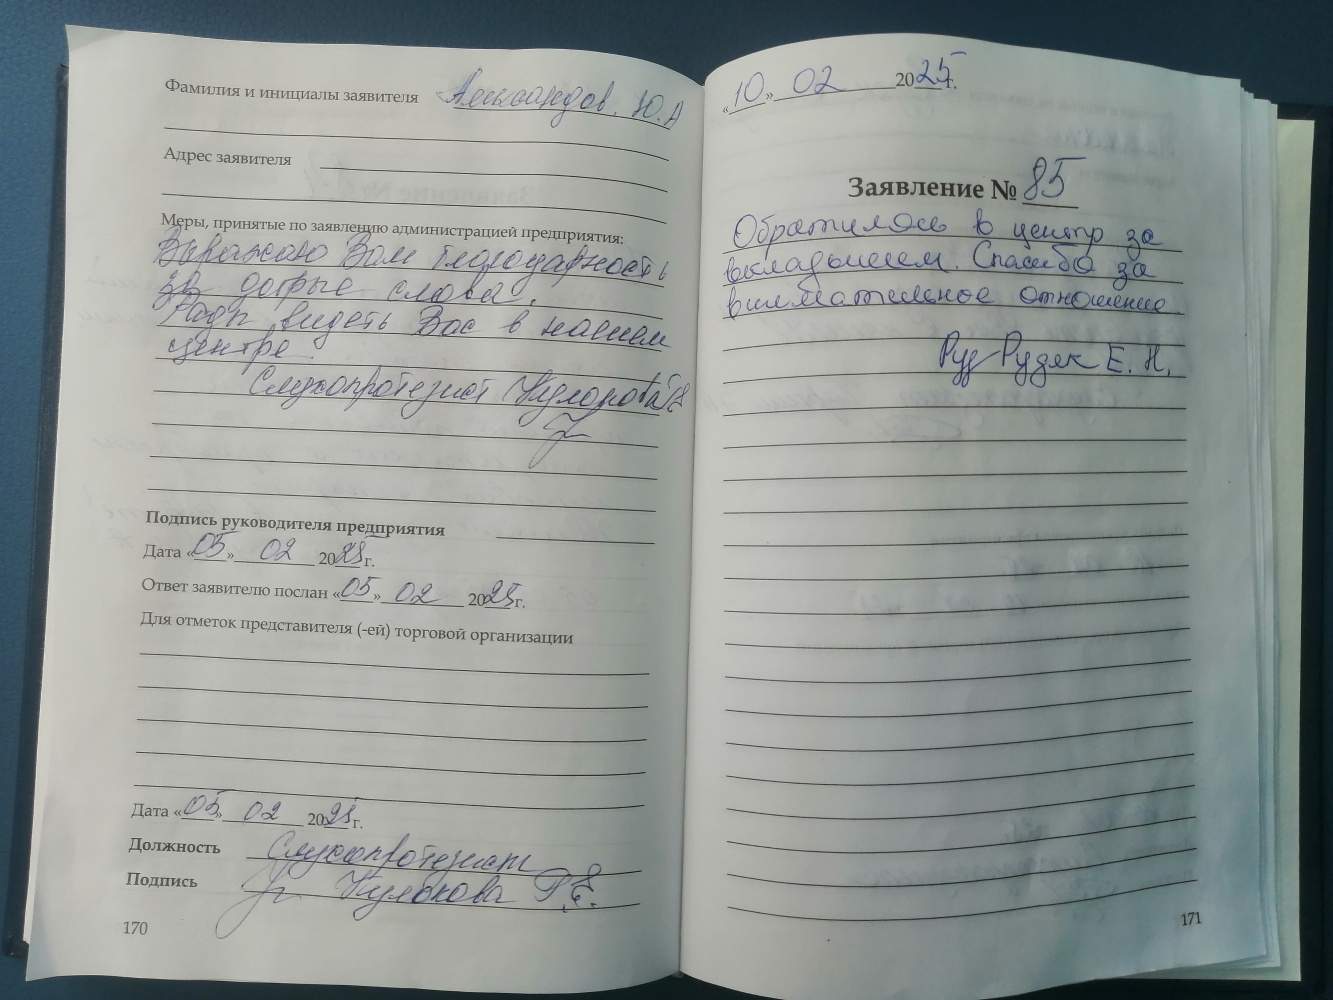 Фамилия и инициалы заявителя Александров. Ю.А
Адрес заявителя
Меры, принятые по заявлению администрацией предприятия:
Выражаю Вам благодарность
за добрые слова.
Рады видеть Вас в нашем
центре
Слухопротезист
Подпись руководителя предприятия
Дата «05» 02 2025г.
Ответ заявителю послан «05» 02 2025г.
Для отметок представителя (-ей) торговой организации
Дата «05» 02 2025г.
Должность Слухопротезист
Подпись
170
«10» 02 2025г.
Заявление № 85
Обратилась в центр за
вкладышем. Спасибо за
внимательное отношение.
Рудяк Е. Н.
171